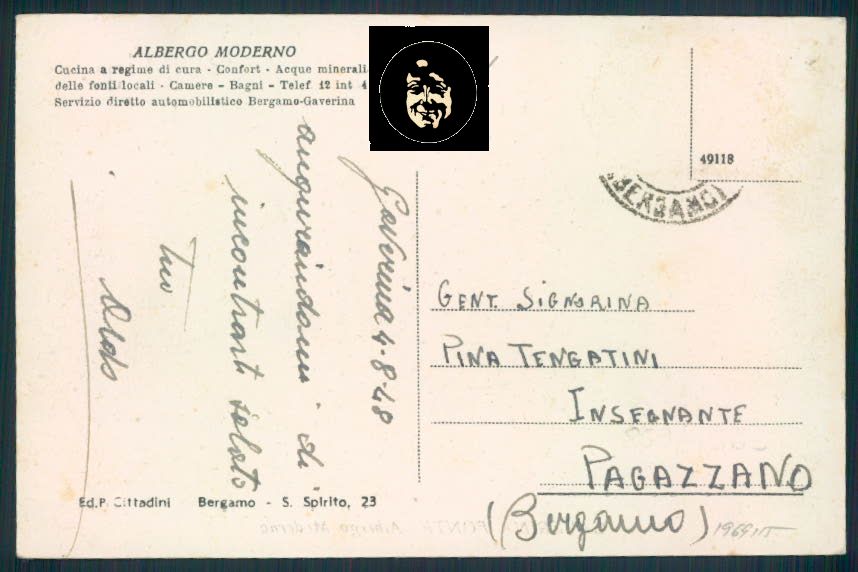 ALBERGO MODERNO
Cucina a regime di cura - Confort - Acque minerali
delle fonti locali - Camere - Bagni - Telef. 12 int 4
Servizio diretto automobilistico Bergamo-Gaverina
49118
BERGAMO
Gaverina 4-8-48
augurandomi di
incontrarti
Tuo
Aldo
GENT. SIGNORINA
PINA TENGATINI
INSEGNANTE
PAGAZZANO
(Bergamo)
Ed.P. Cittadini Bergamo - S. Spirito, 23